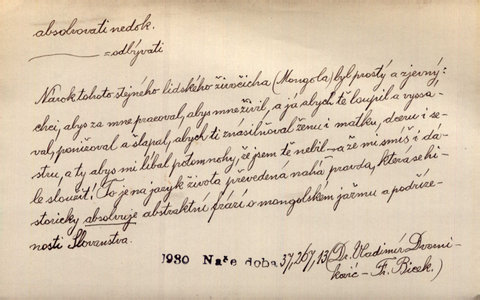 absolvovati nedok.
= odbývati
Nárok tohoto stejného lidského živočicha (Mongola) byl prostý a zjevný:
chci, abys za mne pracoval, abys mne živil, a já abych tě loupil a vyssá-
val, ponižoval a šlapal, abych ti znásilňoval ženu i matku, dceru i se-
stru, a ty abys mi líbal potom nohy, že jsem tě nebil – a že mi smíš i dá-
le sloužit! To je na jazyk života převedena nahá pravda, která se hi-
storicky absolvuje abstraktní frází o mongolském jařmu a podříze-
nosti Slovanstva.
1930 Naše doba 37, 267, 13 (Dr. Vladimír Dvorni-
ković – Fr. Bicek.)